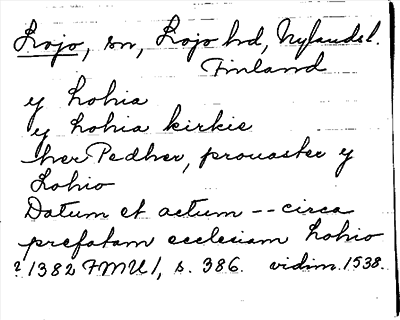 Lojo, sn, Lojo hd, Nylandsl.
Finland
y Lohia
y Lohia kirkie
her Pedher, prouaster y
Lohio
Datum et actum -- circa
prefatam ecclesiam Lohio
? 1382 FMU 1, s. 386. vidim. 1538.